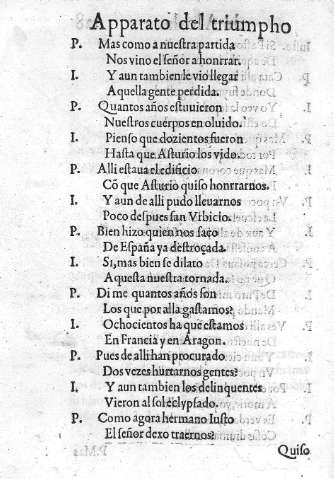 Apparato del triumpho
P. Mas como a nuestra partida
Nos vino el señor a honrrar.
I. Y aun tambien le vio llegar
Aquella gente perdida.
P. Quantos años estuuieron
Nuestros cuerpos en oluido.
I. Pienso que dozientos fueron
Hasta que Asturio los vido.
P. Alli estaua el edificio
Cõ que Asturio quiso honrrarnos.
I. Y aun de alli pudo lleuarnos
Poco despues san Vrbicio.
P. Bien hizo quien nos saco
De España ya destroçada.
I. Si, mas bien se dilato
Aquesta nuestra tornada.
P. Di me quantos años son
Los que por alla gastamos?
I. Ochocientos ha que estamos
En Francia y en Aragon.
P. Pues de alli han procurado
Dos vezes hurtarnos gentes?
I. Y aun tambien los delinquentes
Vieron al sol eclypsado.
P. Como agora hermano Iusto
El señor dexo traernos?
Quiso